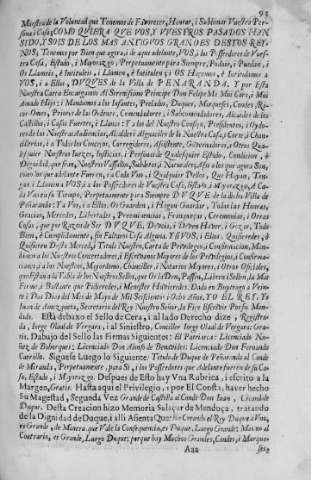 95
Muestra de la Voluntad que Tenemos de Favorecer, Honrar, i Sublimar Vuestra Per-
sona i Casa; COMO QUIERA QUE VOS, Y VUESTROS PASADOS HAN
SIDO, Y SOIS DE LOS MAS ANTIGVOS GRANDES DESTOS REY-
NOS, Tenemos por Bien que agora, i de aqui adelante, VOS, i los Poseedores de Vues-
tra Casa, Estado, i Mayorazgo, Perpetuamente para Siempre, Podais, i Puedan, i
Os Llameis, è Intituleis, i Llamen, è Intitulen; i OS Hazemos, è Intitulamos à
VOS, i à Ellos, DUQVES de la Villa de PEÑARANDA. Y por Esta
Nuestra Carta Encargamos Al Serenissimo Principe Don Felipe Mi Mui Caro, i Mui
Amado Hijo; i Mandamos a los Infantes, Prelados, Duques, Marqueses, Condes, Ricos-
Omes, Priores de las Ordenes, Comendadores, i Subcomendadores, Alcaides de los
Castillos, i Casas Fuertes, i Llanas; i A los del Nuestro Consejo, Presidentes, i Oydo-
res de las Nuestras Audiencias, Alcaldes i Alguaciles de la Nuestra Casa, i Corte, è Chan-
cillerias, i a Todos los Concejos, Corregidores, Asistente, Governadores, i Otros Qua-
lesquier Nuestros Iuezes, Iusticias, i Personas de Qualesquier Estado, Condicion, è
Dignidad, que sean, Nuestros Vassallos, Subditos, i Naturales, Asi a los que agora Son,
como a los que adelante Fueren, i a Cada Vno, i Qualquier Dellos, Que Hayan, Ten-
gan, i Llamen a VOS, i a los Poseedores de Vuestra Casa, Estado, i Mayorazgo, A Ca-
da Vno en su Tiempo, Perpetuamente para Siempre DVQVE de la dicha Villa de
Peñaranda: Ya Vos, i a Ellos, Os Guarden, i Hagan Guardar, Todas las Honras,
Gracias, Mercedes, Libertades, Preeminencias, Franquezas, Ceremonias, i Otras
Cosas, que por Razon de Ser DVQVE, Deveis, i Deven Haver, i Gozar, Todo
Bien, è Cumplidamente, sin Faltaros Cosa Alguna. Y si VOS, i Ellos, Quisieredes, ò
Quisieren Desta Merced, i Titulo Nuestra Carta de Previlegio, i Confirmacion, Man-
damos a los Nuestros Concertadores, i Escrivanos Mayores de los Previlegios, i Confirma-
ciones, i a los Nuestros, Mayordomo, Chanciller, i Notarios Mayores, i Otros Oficiales,
que Estan a la Tabla de los Nuestros Sellos, que Os la Den, Passen, Libren, i Sellen, la Mas
Firme, i Bastante que Pidieredes, i Menester Huvieredes. Dada en Buytrago a Vein-
te i Dos Dias del Mes de Mayo de Mil Seiscientos i Ocho Años. YO EL REY. Yo
Iuan de Amezqueta, Secretario del Rey Nuestro Señor, la Fize Escrivir Por su Man-
dado. Está debaxo el Sello de Cera, i al lado Derecho dize, Registra-
da, Iorge Olaal de Vergara; i al Siniestro, Canciller Iorge Olaal de Vergara: Gra-
tis. Dabajo del Sello las Firmas Siguientes: El Patriarca: Licenciado Nu-
ñez de Bohorques: Licenciado Don Alonso de Benavides: Licenciado Don Fernando
Carrillo. Siguese Luego lo Siguiente: Titulo de Duque de Peñaranda al Conde
de Miranda, Perpetuamente, para Si, i los Poseedores que Adelante fueren de su Ca-
sa, Estado, i Mayorazgo. Despues de Esto hay Vna Rubrica, i escrito a la
Margen, Gratis. Hasta aqui el Privilegio, i por El Consta, haver hecho
Su Magestad, Segunda Vez Grande de Castilla al Conde Don Iuan, i
Duque. Desta Creacion hizo Memoria Salaçar de Mendoça, tratando
de la Dignidad de Duque, i alli Asienta
Aaa